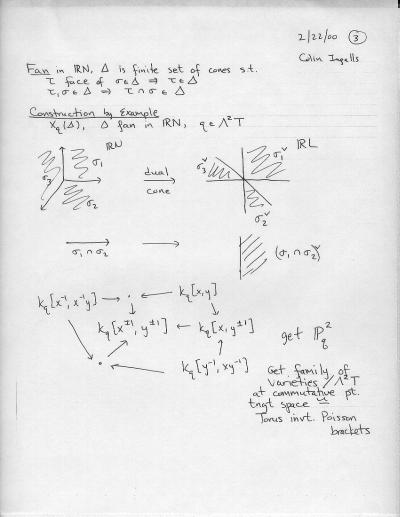 2/22/00 ③
Colin Ingalls
Fan in ℝN, Δ is finite set of cones s.t.
τ face of σ∈Δ ⇒ τ∈Δ
τ,σ∈Δ ⇒ τ∩σ∈Δ
Construction by Example
X_q(Δ), Δ fan in ℝN, q∈Λ²T
ℝN
ℝL
σ₁
σ₃
σ₂
dual
cone
σ₁ˇ
σ₃ˇ
σ₂ˇ
σ₁∩σ₂
(σ₁∩σ₂)ˇ
k_q[x⁻¹, x⁻¹y] → · ← k_q[x,y]
k_q[x^{±1}, y^{±1}] ← k_q[x, y^{±1}]
get ℙ²_q
· ← k_q[y⁻¹, xy⁻¹]
Get family of
varieties / Λ²T
at commutative pt.
tngt space ≅
Torus invt. Poisson
brackets